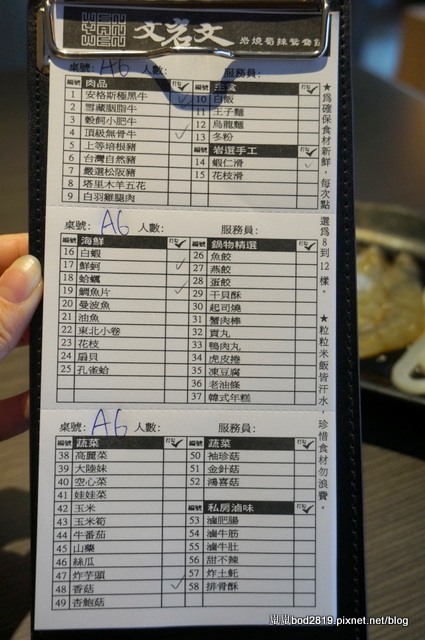 文岩文
岩燒蜀辣鴛鴦鍋
桌號: A6 人數: 服務員:
編號 肉品
1 安格斯極黑牛
2 雪藏胭脂牛
3 穀飼小肥牛
4 頂級無骨牛
5 上等培根豬
6 台灣自然豬
7 嚴選松阪豬
8 塔里木羊五花
9 白羽雞腿肉
編號 主食
10 白飯
11 王子麵
12 烏龍麵
13 冬粉
編號 岩選手工
14 蝦仁滑
15 花枝滑
桌號: A6 人數: 服務員:
編號 海鮮
16 白蝦
17 鮮蚵
18 蛤蠣
19 鯛魚片
20 曼波魚
21 油魚
22 東北小卷
23 花枝
24 扇貝
25 孔雀蛤
編號 鍋物精選
26 魚餃
27 燕餃
28 蛋餃
29 干貝酥
30 起司燒
31 蟹肉棒
32 貢丸
33 鴨肉丸
34 虎皮捲
35 凍豆腐
36 老油條
37 韓式年糕
桌號: A6 人數: 服務員:
編號 蔬菜
38 高麗菜
39 大陸妹
40 空心菜
41 娃娃菜
42 玉米
43 玉米筍
44 牛番茄
45 山藥
46 絲瓜
47 炸芋頭
48 香菇
49 杏鮑菇
編號 蔬菜
50 袖珍菇
51 金針菇
52 鴻喜菇
編號 私房滷味
53 滷肥腸
54 滷牛筋
55 滷牛肚
56 甜不辣
57 炸土魠
58 排骨酥
★為確保食材新鮮,每次點選為8到12樣。
★粒粒米飯皆汗水,珍惜食材勿浪費。
bod2819.pixnet.net/blog